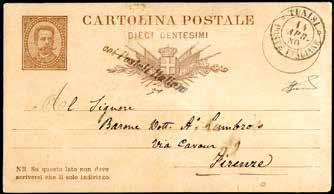 CARTOLINA POSTALE
DIECI CENTESIMI
TUNISI
14
APR
80
POSTE ITALIANE
coi Postali Italiani
Al Signore
Barone Dott. A. Lumbroso
Via Cavour
Firenze
NB. Su questo lato non deve
scriversi che il solo indirizzo.